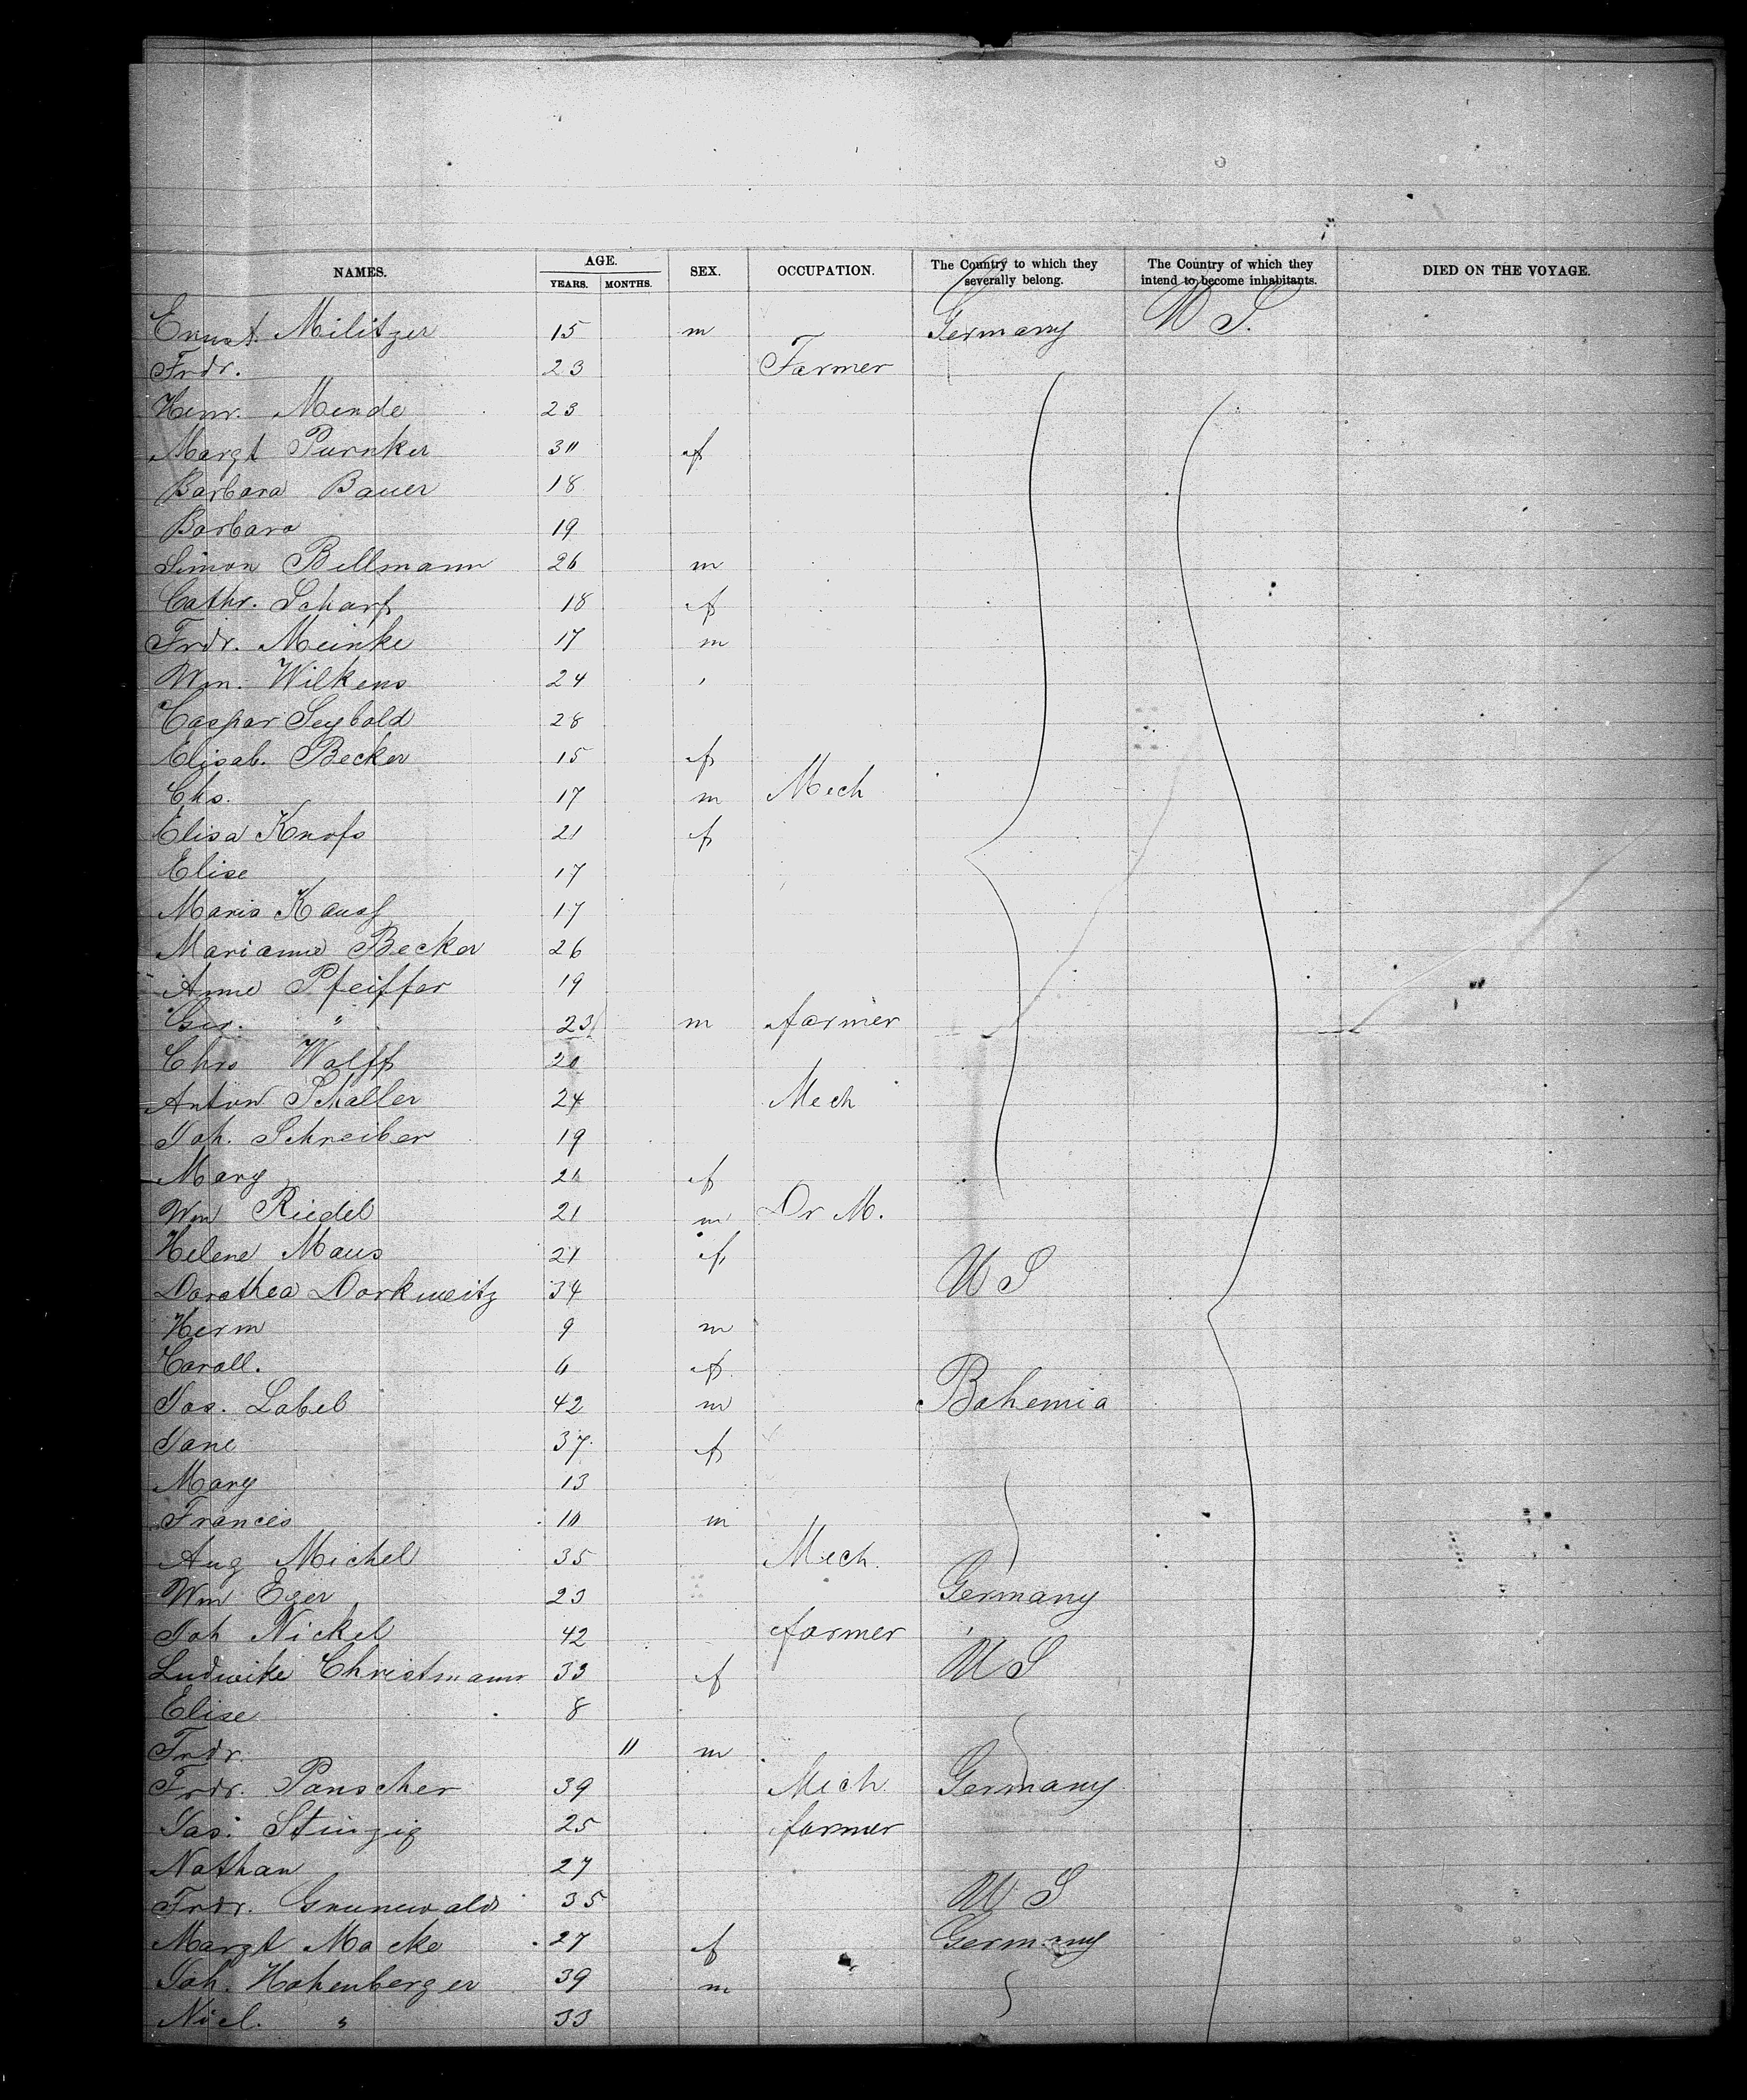 NAMES. AGE. SEX. OCCUPATION. The Country to which they severally belong. The Country of which they intend to become inhabitants. DIED ON THE VOYAGE.
YEARS. MONTHS.
Ernst. Militzer 15 m Germany U S.
Frdr. 23 Farmer
Henr. Mende 23
Margt Purnker 30
f
Barbara Bauer 18
Barbara 19
Simon Billmann 26 m
Cathr. Scharf 18 f
Frdr. Meinke 17 m
Wm. Wilkens 24
Caspar Seybold 28
Elisab. Becker 15 f
Chs. 17 m Mech
Elisa Knofs 21 f
Elise 17
Maria Kauf 17
Marianne Becker 26
Anne Pfeiffer 19
Geo. " 23 m farmer
Chrs Wolff 20
Anton Schaller 24 Mech
Joh. Schreiber 19
Mary 20 f
Wm Riedel 21 m Dr M.
Helene Maus 21 f
Dorothea Dorkweitz 34 U S
Herm 9 m
Caroll. 6 f
Jos. Label 42 m Bohemia
Jane 37 f
Mary 13
Francis 10 m
Aug Michel 35 Mech.
Wm Eger 23 Germany
Joh Nickel 42 farmer
Ludwike Christmann 33 f U S
Elise 8
Frdr. 11 m
Frdr. Panscher 39 Mech. Germany
Jas. Stinzig 25 farmer
Nathan 27
Frdr. Grunewald 35 U S
Margt Macke 27 f Germany
Joh. Hohenberger 39 m
Nicl. " 33